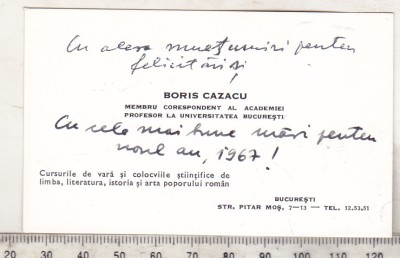 Cu alese mulțumiri pentru
felicitări și
BORIS CAZACU
MEMBRU CORESPONDENT AL ACADEMIEI
PROFESOR LA UNIVERSITATEA BUCUREȘTI
Cu cele mai bune urări pentru
noul an, 1967!
Cursurile de vară și colocviile științifice de
limba, literatura, istoria și arta poporului român
BUCUREȘTI
STR. PITAR MOȘ, 7—13 — TEL. 12.53.51
20 30 40 50 60 70 80 90 100 110 120